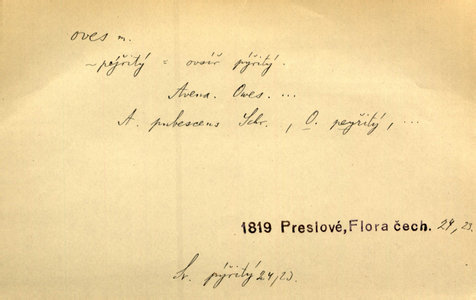 oves m.
~ pejřitý = ovsíř pýřitý.
Avena. Owes. ...
A. pubescens Schr., O. pegřitý, ...
1819 Preslové, Flora čech. 24, 23.
Sv. pýřitý 24,23.